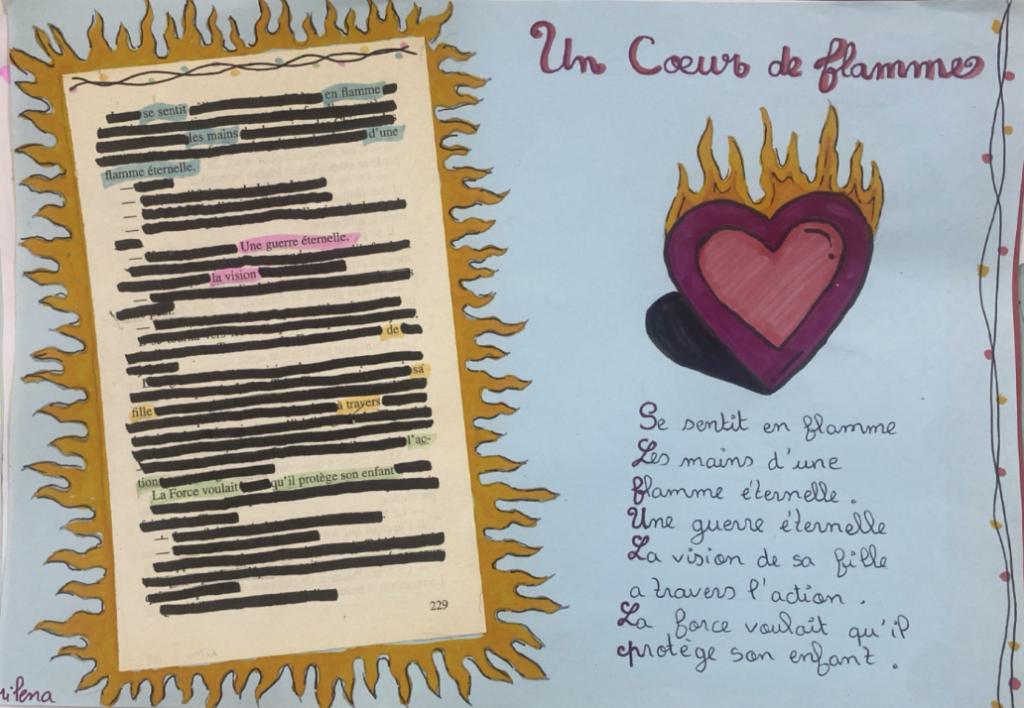 Un Cœur de flamme
se sentit en flamme
les mains d'une
flamme éternelle.
Une guerre éternelle.
la vision
de
sa
fille à travers
l'ac-
tion
La Force voulait qu'il protège son enfant
229
Se sentit en flamme
Les mains d'une
flamme éternelle.
Une guerre éternelle
La vision de sa fille
a travers l'action.
La force voulait qu'il
protège son enfant.